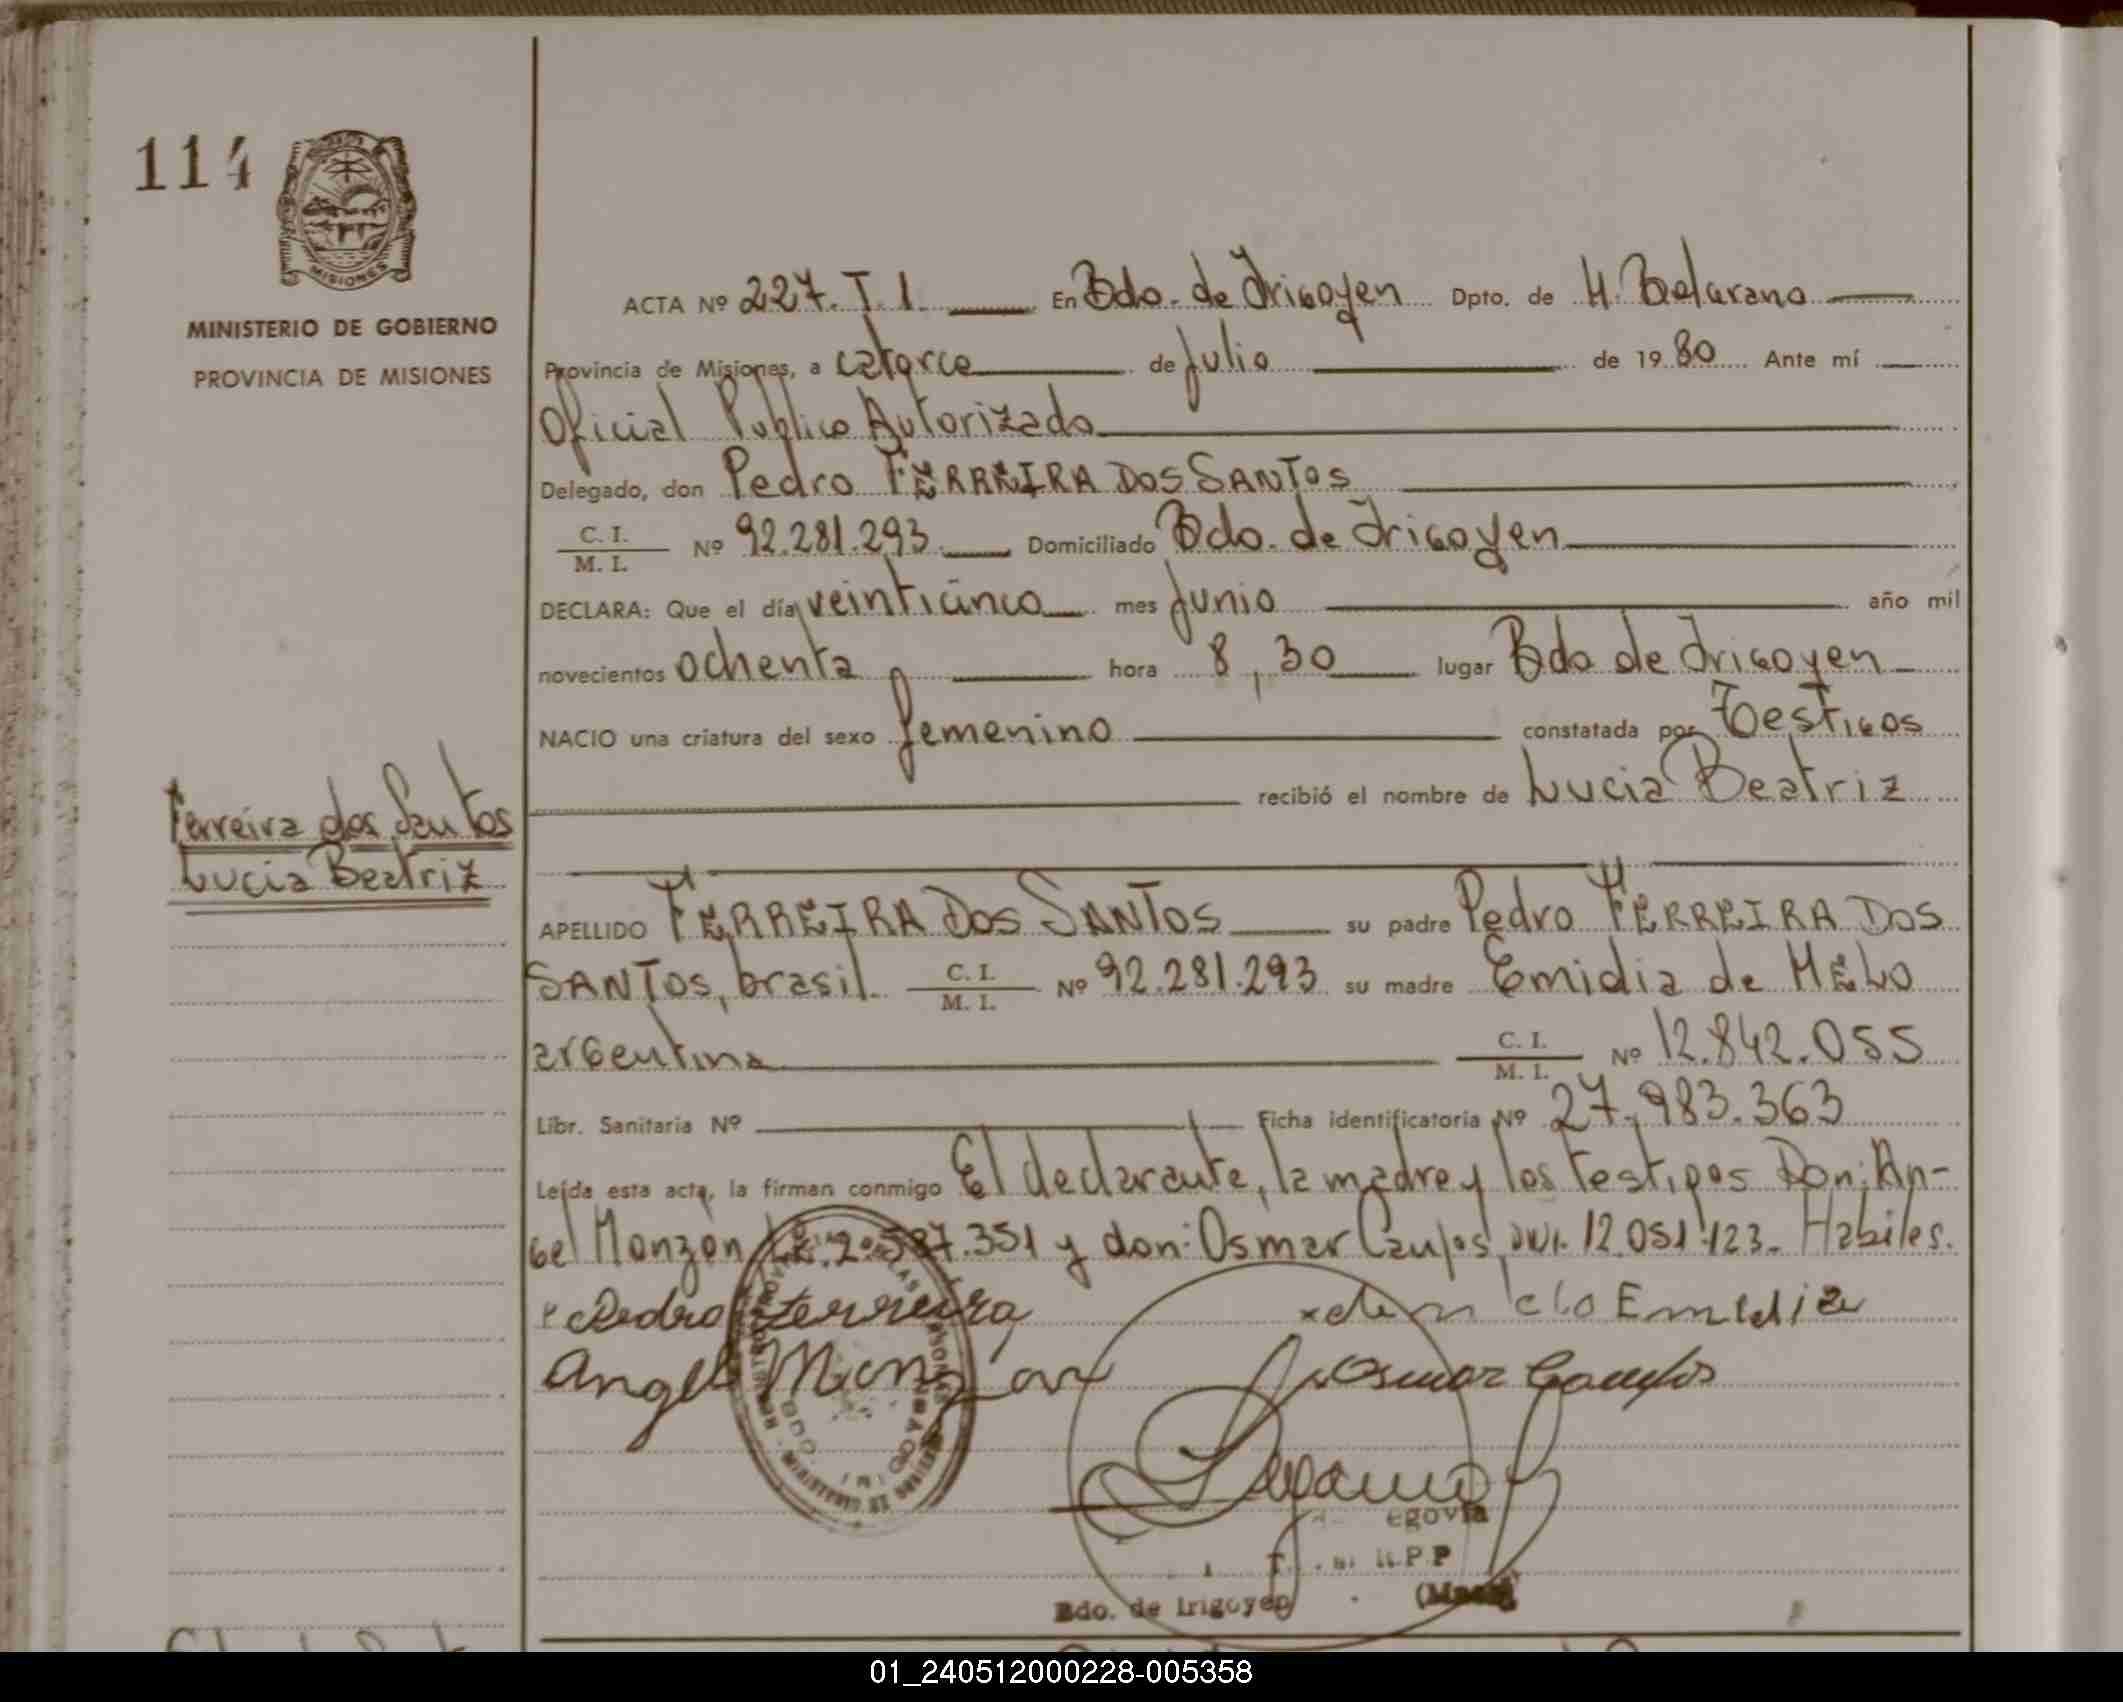 114
MISIONES
MINISTERIO DE GOBIERNO
PROVINCIA DE MISIONES
ACTA Nº 227. T. 1. En Bdo. de Irigoyen Dpto. de M. Belgrano
Provincia de Misiones, a catorce de Julio de 1980 Ante mí
Oficial Publico Autorizado
Delegado, don Pedro FERREIRA DOS SANTOS
C. I.
M. I. Nº 92.281.293 Domiciliado Bdo. de Irigoyen
DECLARA: Que el día veinticinco mes Junio año mil
novecientos ochenta hora 8,30 lugar Bdo de Irigoyen
NACIO una criatura del sexo femenino constatada por Testigos
recibió el nombre de Lucia Beatriz
Ferreira dos Santos
Lucia Beatriz
APELLIDO FERREIRA DOS SANTOS su padre Pedro FERREIRA DOS
SANTOS, brasil. C. I. M. I. Nº 92.281.293 su madre Emidia de MELO
argentina C. I. M. I. Nº 12.842.055
Libr. Sanitaria Nº Ficha identificatoria Nº 27.983.363
Leída esta acta, la firman conmigo El declarante, la madre y los testigos Don: An-
gel Monzon 2.587.351 y don: Osmar Campos DNI. 12.051.123. Habiles.
Pedro Ferreira
x de melo Emidia
Angel Monzon
Osmar Campos
egovia
Bdo. de Irigoyen
01_240512000228-005358